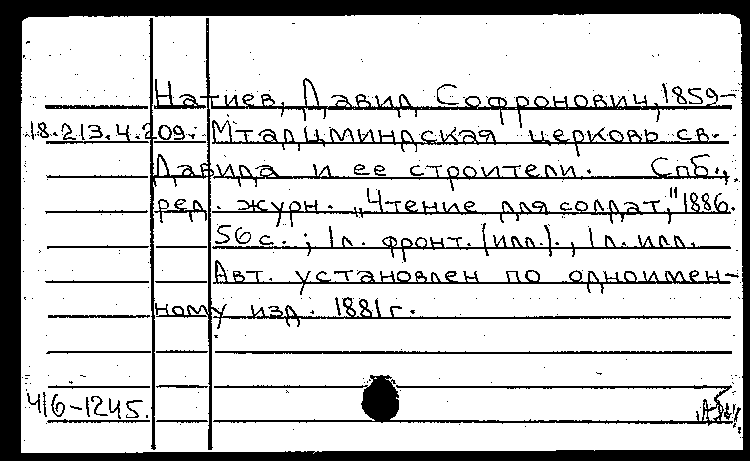 Натиев, Давид Софронович, 1859-
18.213.4.209. Мтадцминдская церковь св.
Давида и ее строители. Спб.,
ред. журн. „Чтение для солдат," 1886.
56 с. ; 1 л. фронт. (илл.)., 1 л. илл.
Авт. установлен по одноимен-
ному изд. 1881 г.
416-1245.